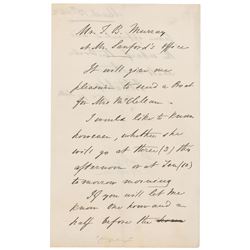 Mr. T. B. Murray
at Mr. Sanford's Office
It will give me
pleasure to send a Boat
for Mrs McClellan.
I would like to know
however, whether she
will go at three (3) this
afternoon or at Ten (10)
tomorrow morning
If you will let me
know one hour and a
half before the